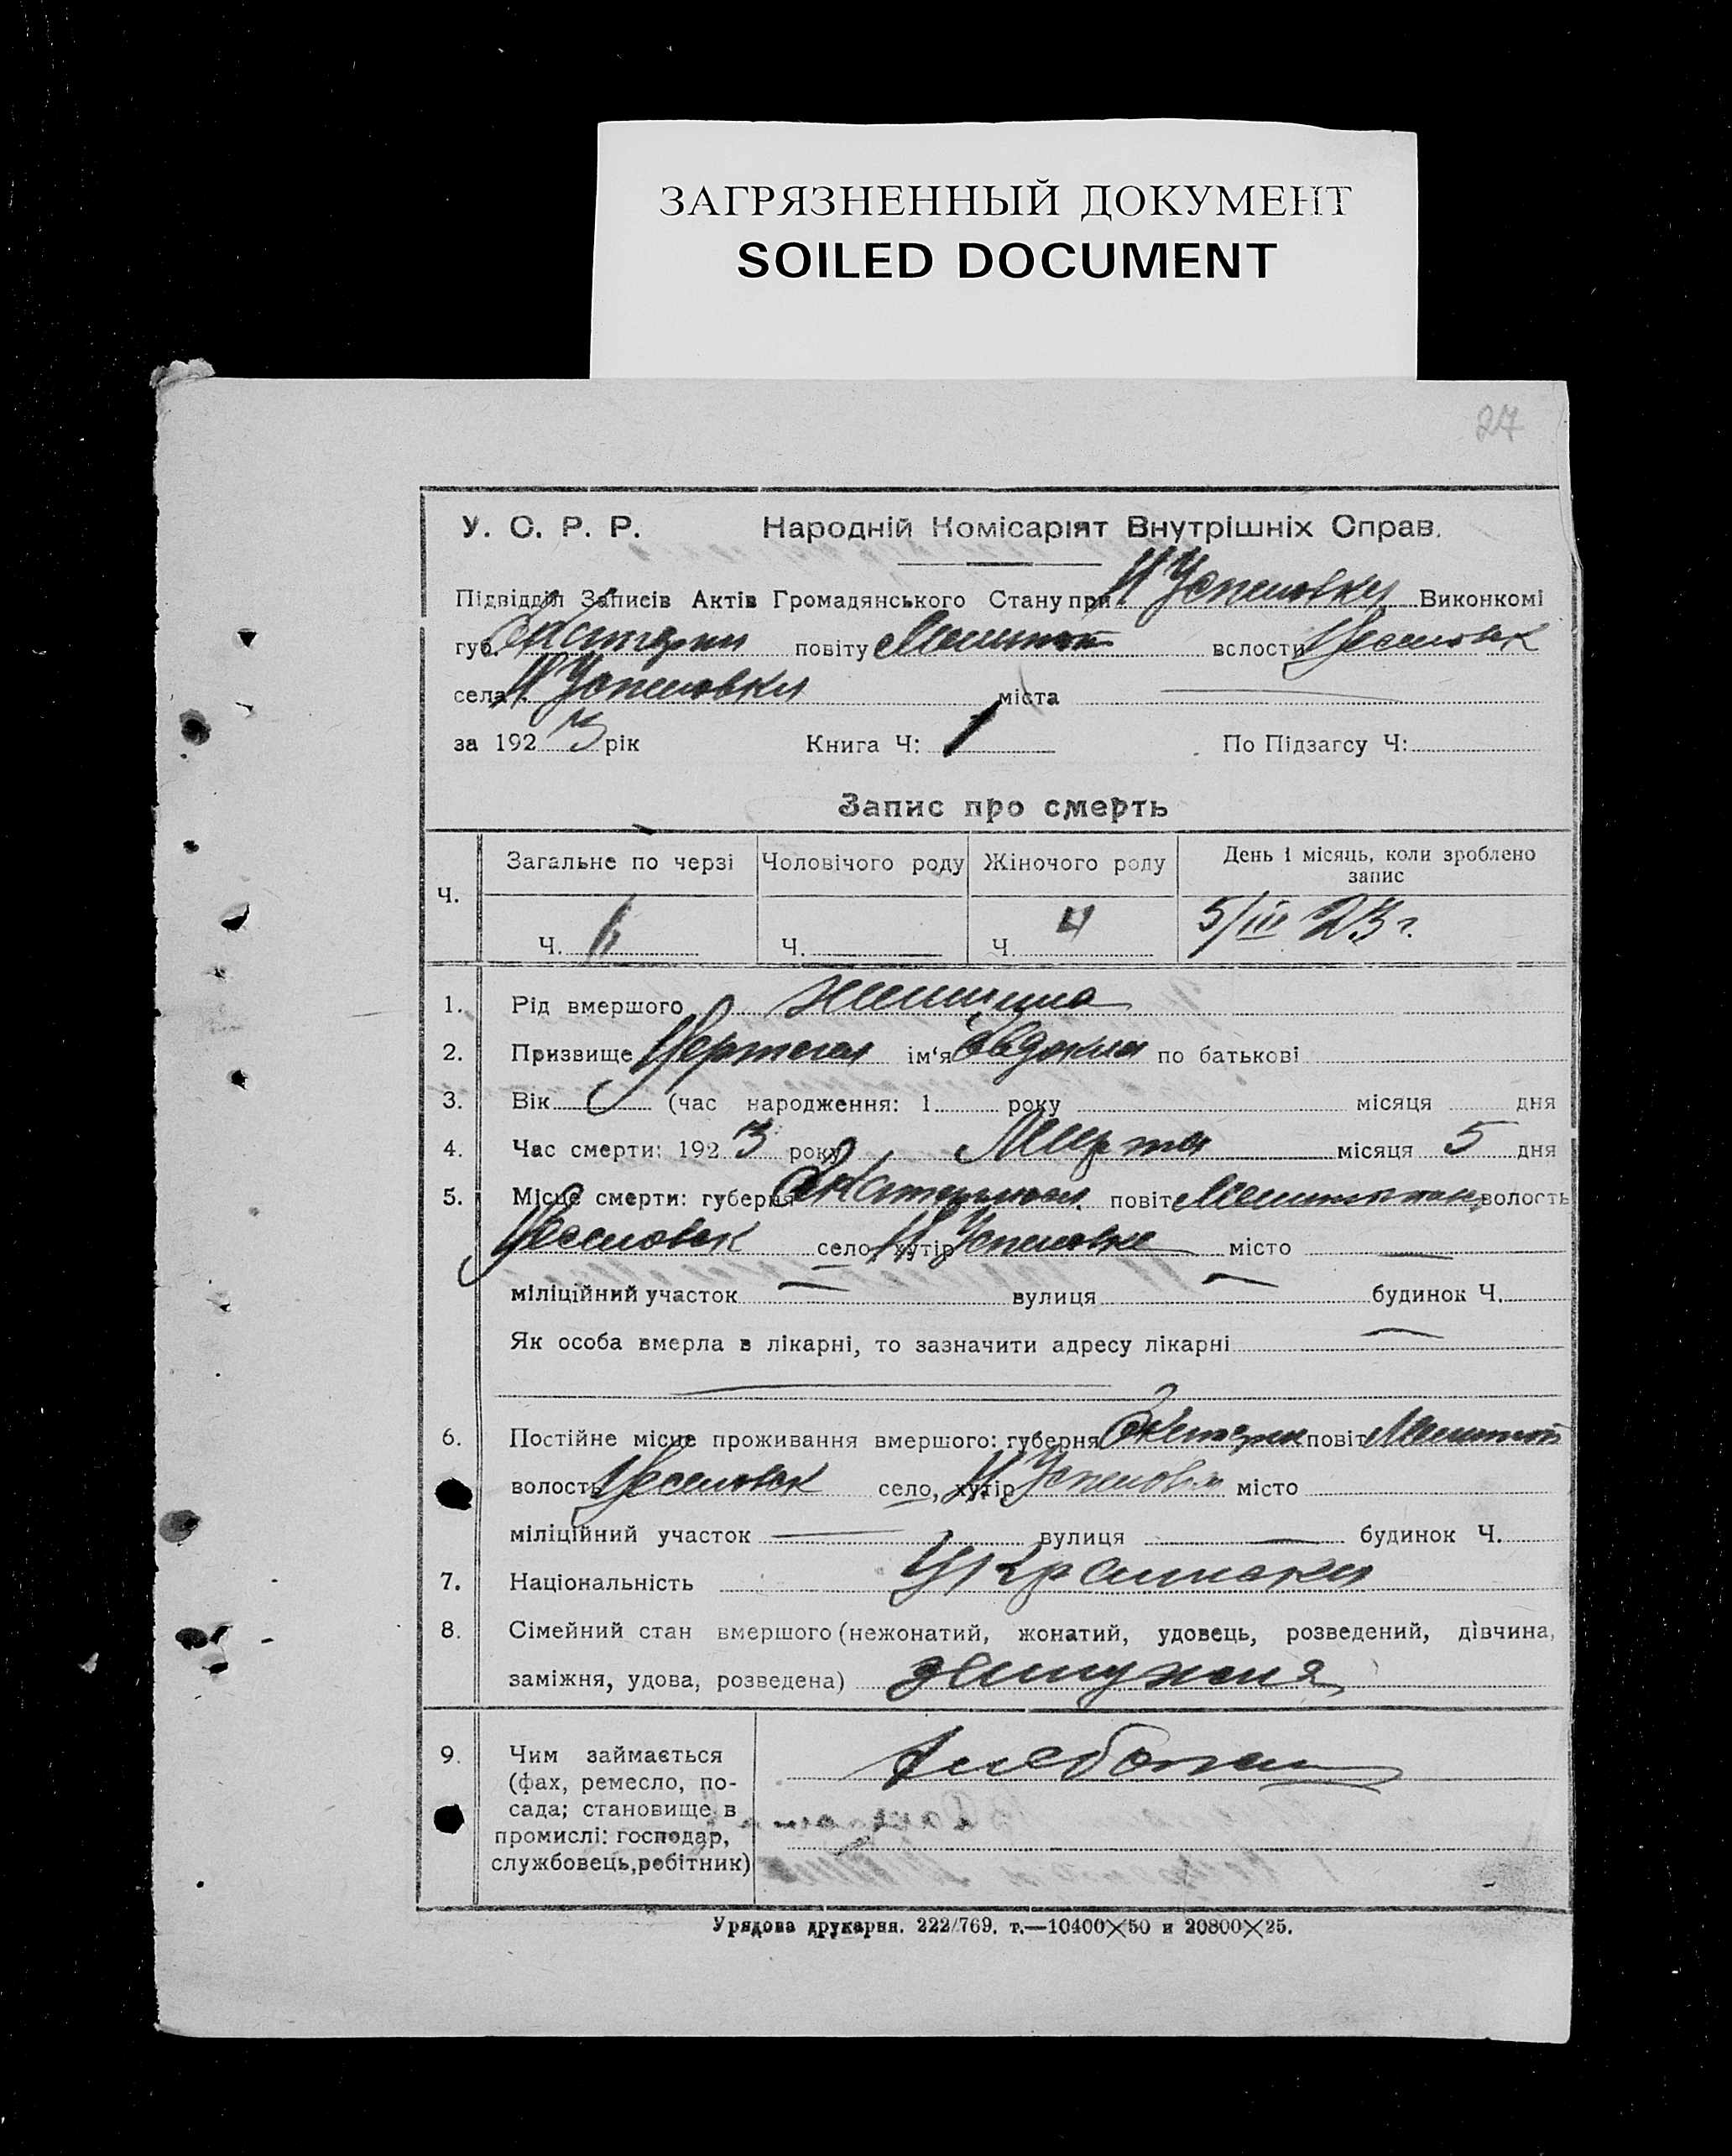 ЗАГРЯЗНЕННЫЙ ДОКУМЕНТ
SOILED DOCUMENT
27
У. С. Р. Р. Народній Комісаріят Внутрішніх Справ.
Підвідділ Записів Актів Громадянського Стану при Н Успеновки Виконкомі
губ. Екатерин повіту Мелитоп вслости Веселовск
села Н Успеновки міста
за 1923 рік Книга Ч: 1 По Підзагсу Ч:
Запис про смерть
Ч. Загальне по черзі Чоловічого роду Жіночого роду День і місяць, коли зроблено
запис
Ч. 6 Ч. Ч. 4 5/III 23 г.
1. Рід вмершого женщина
2. Призвище ім'я Евдокия по батькові
3. Вік (час народження: 1 року місяця дня
4. Час смерти: 1923 року Марта місяця 5 дня
5. Місце смерти: губерня повіт волость
Веселовск село, хутір Н Успеновке місто
міліційний участок вулиця будинок Ч.
Як особа вмерла в лікарні, то зазначити адресу лікарні
6. Постійне місце проживання вмершого: губерня Екатерин повіт Мелитоп
волость Веселовск село, хутір Н Успеновка місто
міліційний участок вулиця будинок Ч.
7. Національність Украинска
8. Сімейний стан вмершого (нежонатий, жонатий, удовець, розведений, дівчина,
заміжня, удова, розведена) замужняя
9. Чим займається
(фах, ремесло, по-
сада; становище в
промислі: господар,
службовець, робітник) Хлебопаш
Урядова друкарня. 222/769. т.—10400×50 и 20800×25.